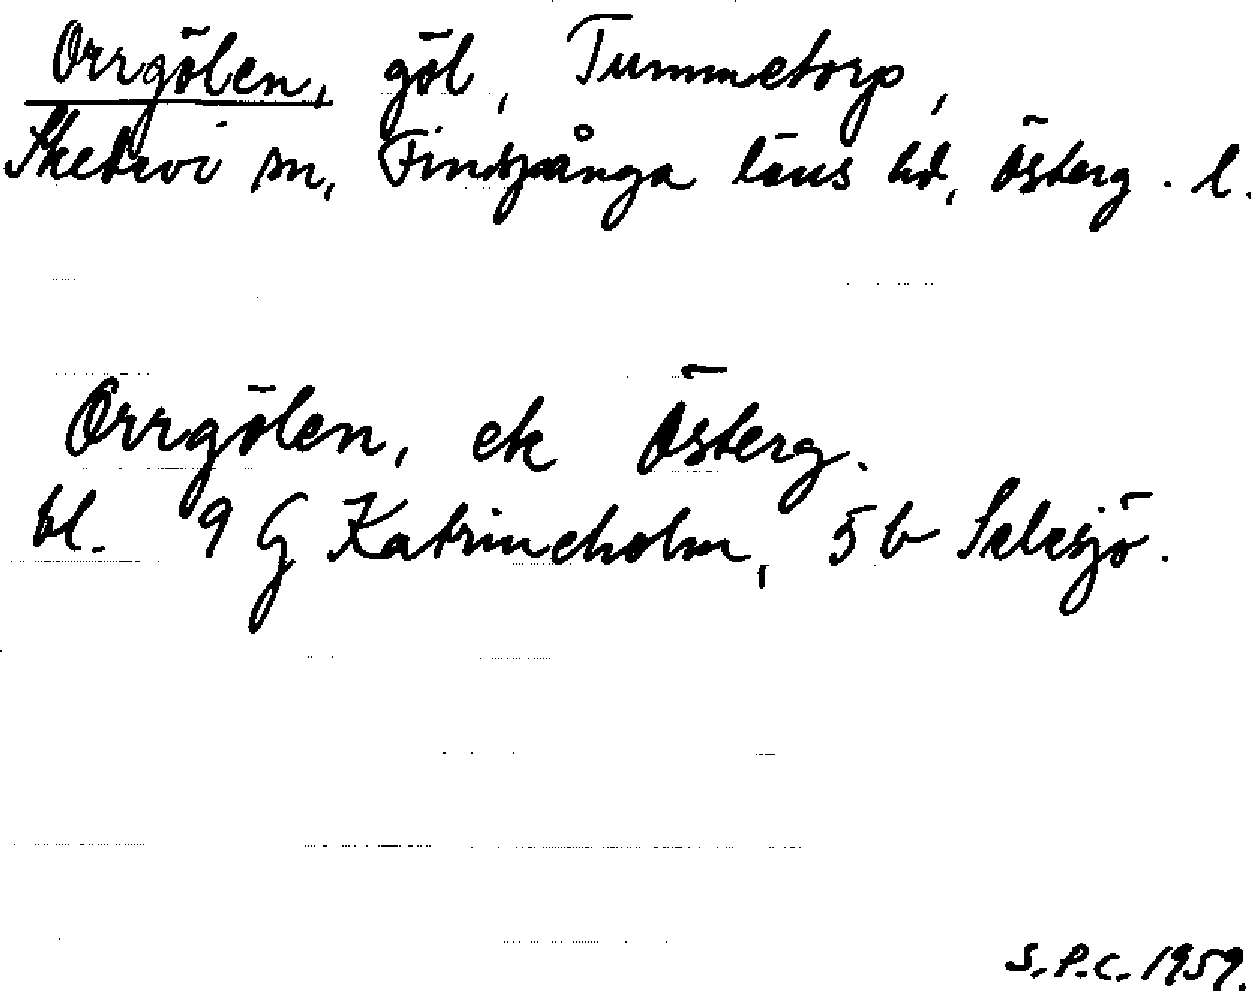 Orrgölen, göl, Tummetorp,
Skedevi sn, Finspånga läns hd, Österg. l.
Orrgölen, ek Österg.
bl. 9 G Katrineholm, 5 b Selesjö.
S.P.C. 1959.